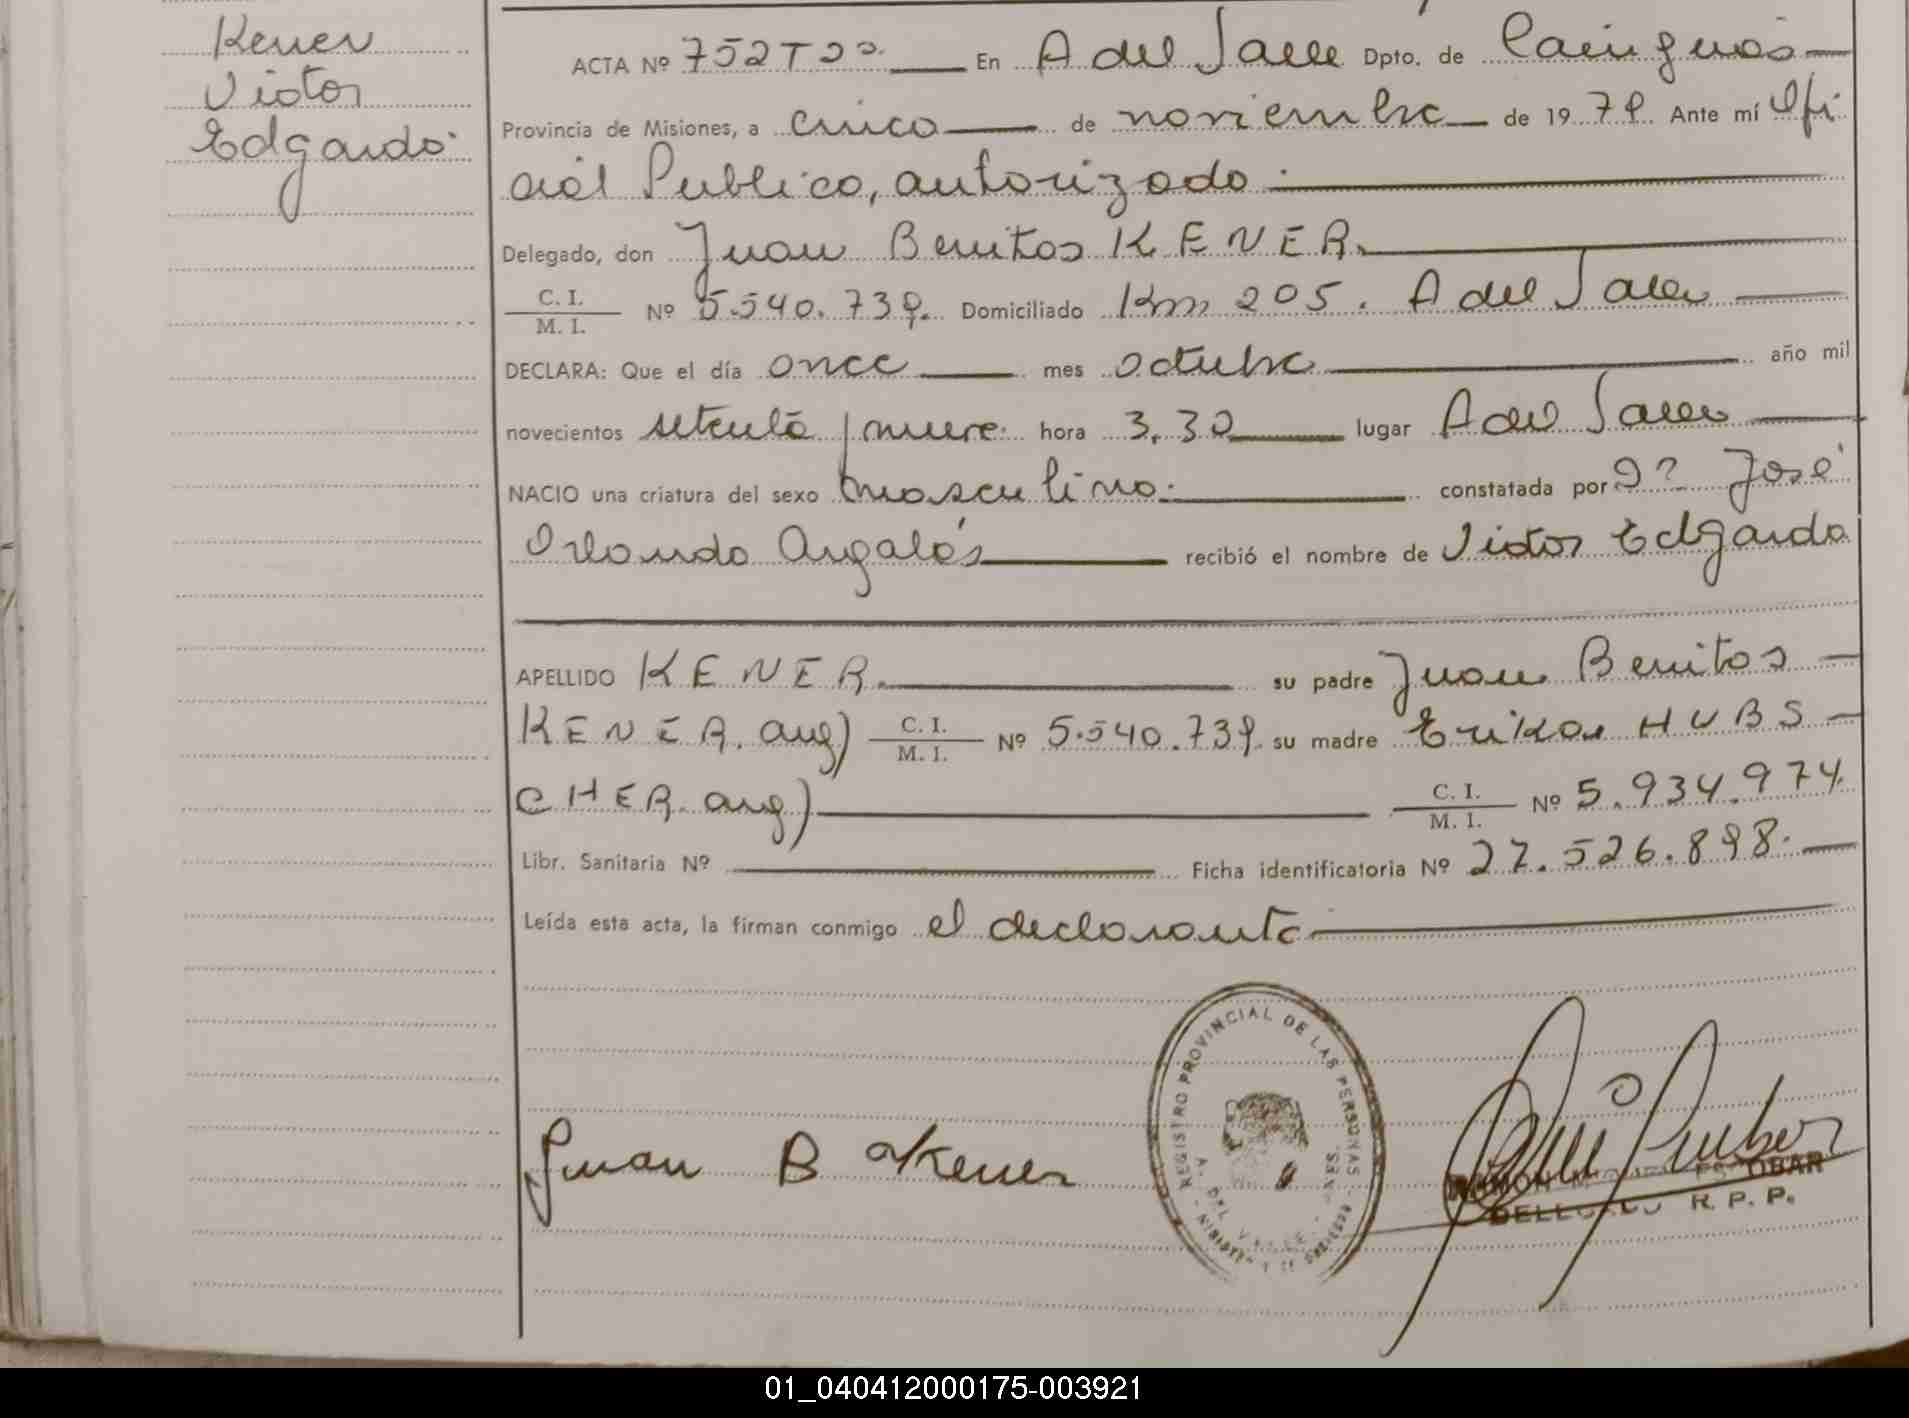 Kener
Victor
Edgardo
ACTA Nº 752 T 2º En A del Valle Dpto. de Cainguás
Provincia de Misiones, a cinco de noviembre de 1979. Ante mí Ofi
cial Publico, autorizado.
Delegado, don Juan Benitos KENER.
C. I.
M. I. Nº 5.540.739. Domiciliado Km 205. A del Valle
DECLARA: Que el día once mes octubre año mil
novecientos setenta y nueve hora 3,30 lugar A del Valle
NACIO una criatura del sexo masculino. constatada por Dº José
Orlando Argalás recibió el nombre de Victor Edgardo
APELLIDO KENER. su padre Juan Benitos
KENER. arg) C. I.
M. I. Nº 5.540.739. su madre Erika HUBS
CHER. arg) C. I.
M. I. Nº 5.934.974
Libr. Sanitaria Nº Ficha identificatoria Nº 27.526.898.
Leída esta acta, la firman conmigo el declarante
REGISTRO PROVINCIAL DE LAS PERSONAS
Juan B Kener
RAMON ESCOBAR
DELEGADO R. P. P.
01_040412000175-003921